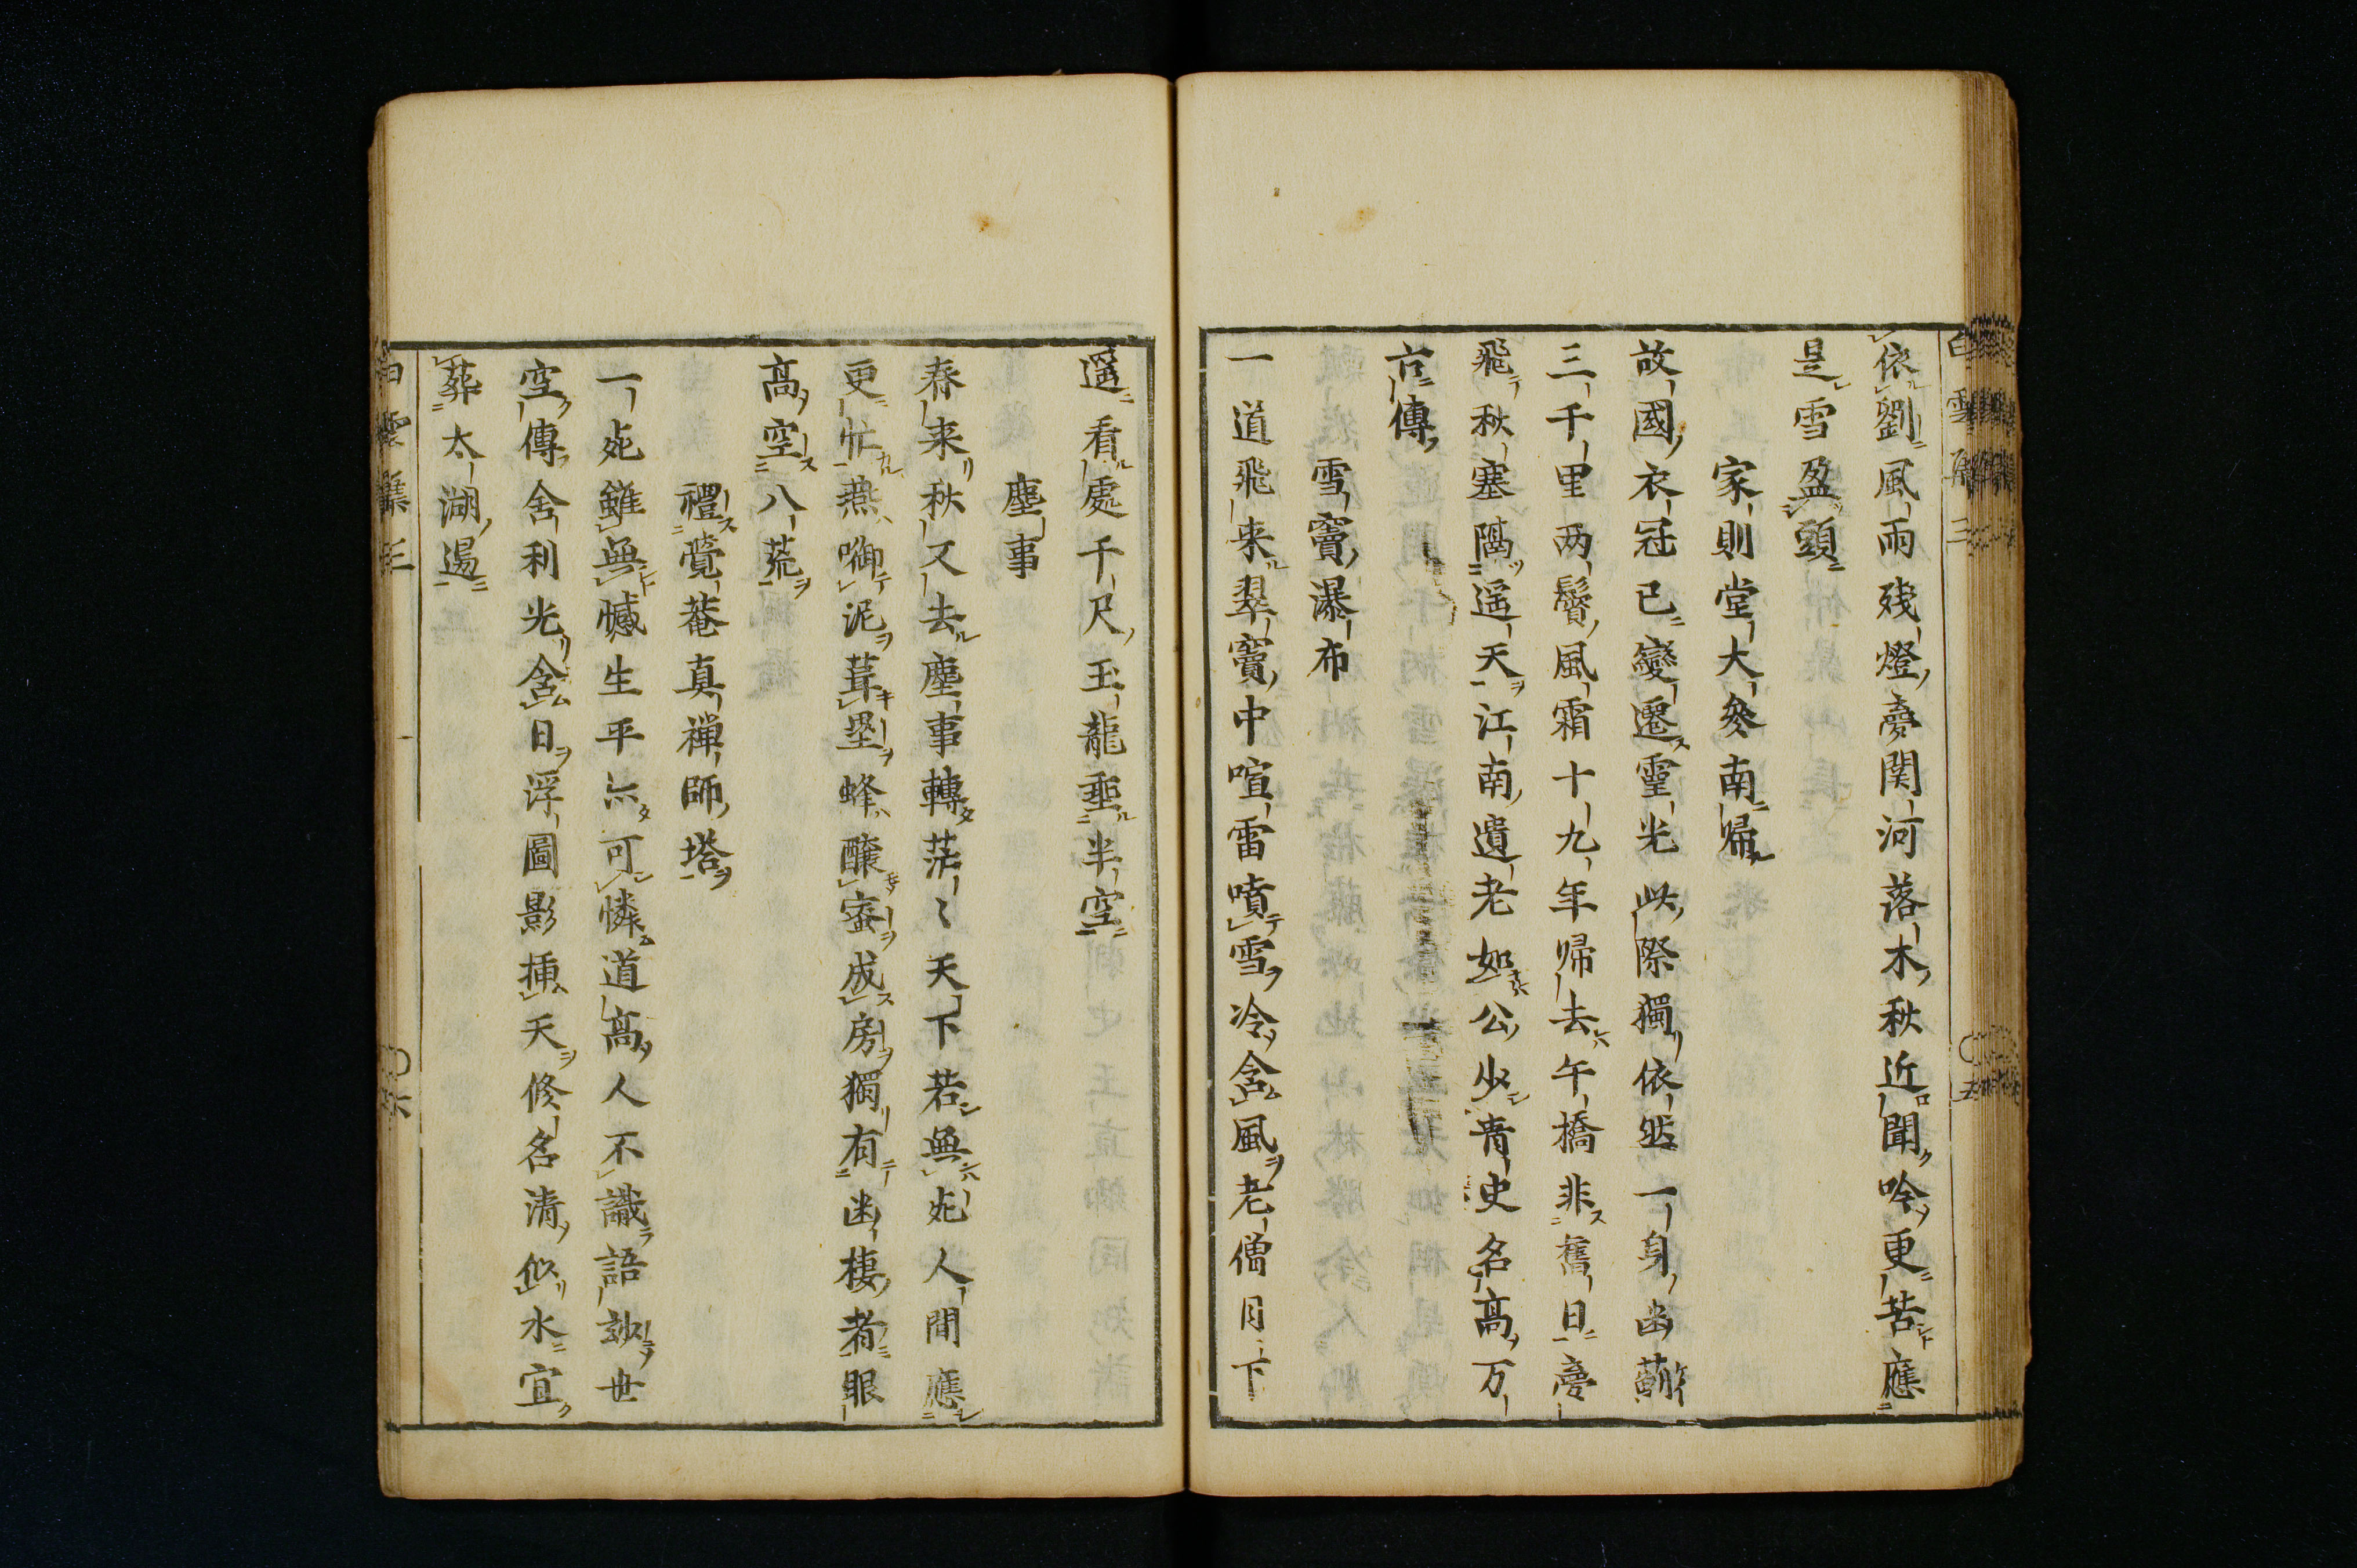 依劉風雨残燈夢関河落木秋近聞吟更苦應
是雪盈頭
家則堂大參南帰
故國衣冠已變遷霊光此際獨依然一身幽薊
三千里両鬓風霜十九年帰去午橋非舊日夢
飛秋塞隔遥天江南遺老如公少青史名高万
古傳
雪竇瀑布
一道飛来翠竇中喧雷噴雪冷含風老僧月下
遥看處千尺玉龍垂半空
塵事
春来秋又去塵事轉茫〻天下若無死人間應
更忙燕啣泥葺壘蜂釀蜜成房獨有幽棲者眼
高空八荒
禮覺菴真禪師塔
一死雖無憾生平亦可憐道高人不識語妙世
空傳舍利光含日浮圖影挿天修名清似水宜
葬太湖邊
白雲集三
六